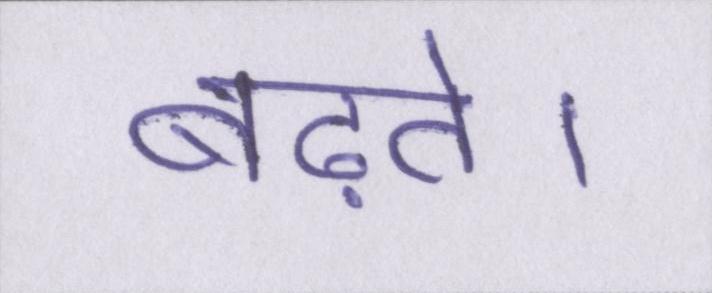 बढ़ते।